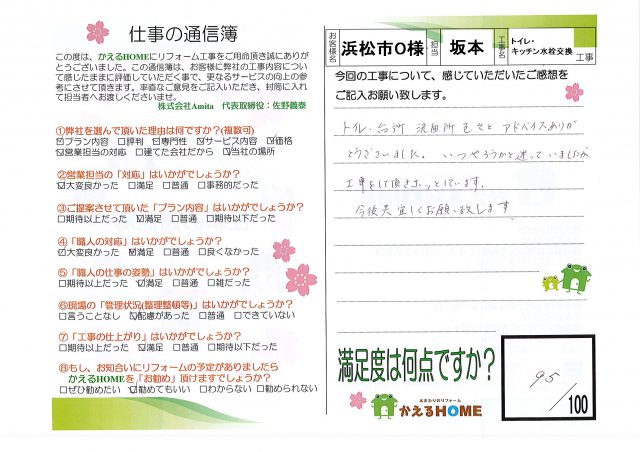 仕事の通信簿
この度は、かえるHOMEにリフォーム工事をご用命頂き誠にありが
とうございました。この通信簿は、お客様に弊社の工事内容につい
て感じたままに評価していただく事で、更なるサービスの向上の参
考にさせて頂きます。率直なご意見をご記入いただき、封筒に入れ
て担当者へお渡しくださいませ。
株式会社Amita 代表取締役：佐野義泰
①弊社を選んで頂いた理由は何ですか?(複数可)
☑プラン内容 □評判 ☑専門性 ☑サービス内容 ☑価格
☑営業担当の対応 □建てた会社だから ☑当社の場所
②営業担当の「対応」はいかがでしょうか?
☑大変良かった □満足 □普通 □事務的だった
③ご提案させて頂いた「プラン内容」はいかがでしょうか?
□期待以上だった ☑満足 □普通 □期待以下だった
④「職人の対応」はいかがでしょうか?
☑大変良かった ☑満足 □普通 □良くなかった
⑤「職人の仕事の姿勢」はいかがでしょうか?
□期待以上だった ☑満足 □普通 □雑だった
⑥現場の「管理状況(整理整頓等)」はいかがでしょうか?
□言うことなし ☑配慮があった □普通 □できていない
⑦「工事の仕上がり」はいかがでしょうか?
□期待以上だった ☑満足 □普通 □期待以下だった
⑧もし、お知合いにリフォームの予定がありましたら
かえるHOMEを「お勧め」頂けますでしょうか?
□ぜひ勧めたい ☑勧めてもいい □わからない □勧められない
お客様名 浜松市O様 担当 坂本 工事名 トイレ・キッチン水栓交換 工事
今回の工事について、感じていただいたご感想を
ご記入お願い致します。
トイレ・台所 洗面所 色々と アドバイスありが
とうございました。 いつやろうかと迷っていましたが
工事をして頂きホッとしています。
今後共宜しくお願い致します。
満足度は何点ですか?
95/100
水まわりのリフォーム
かえるHOME